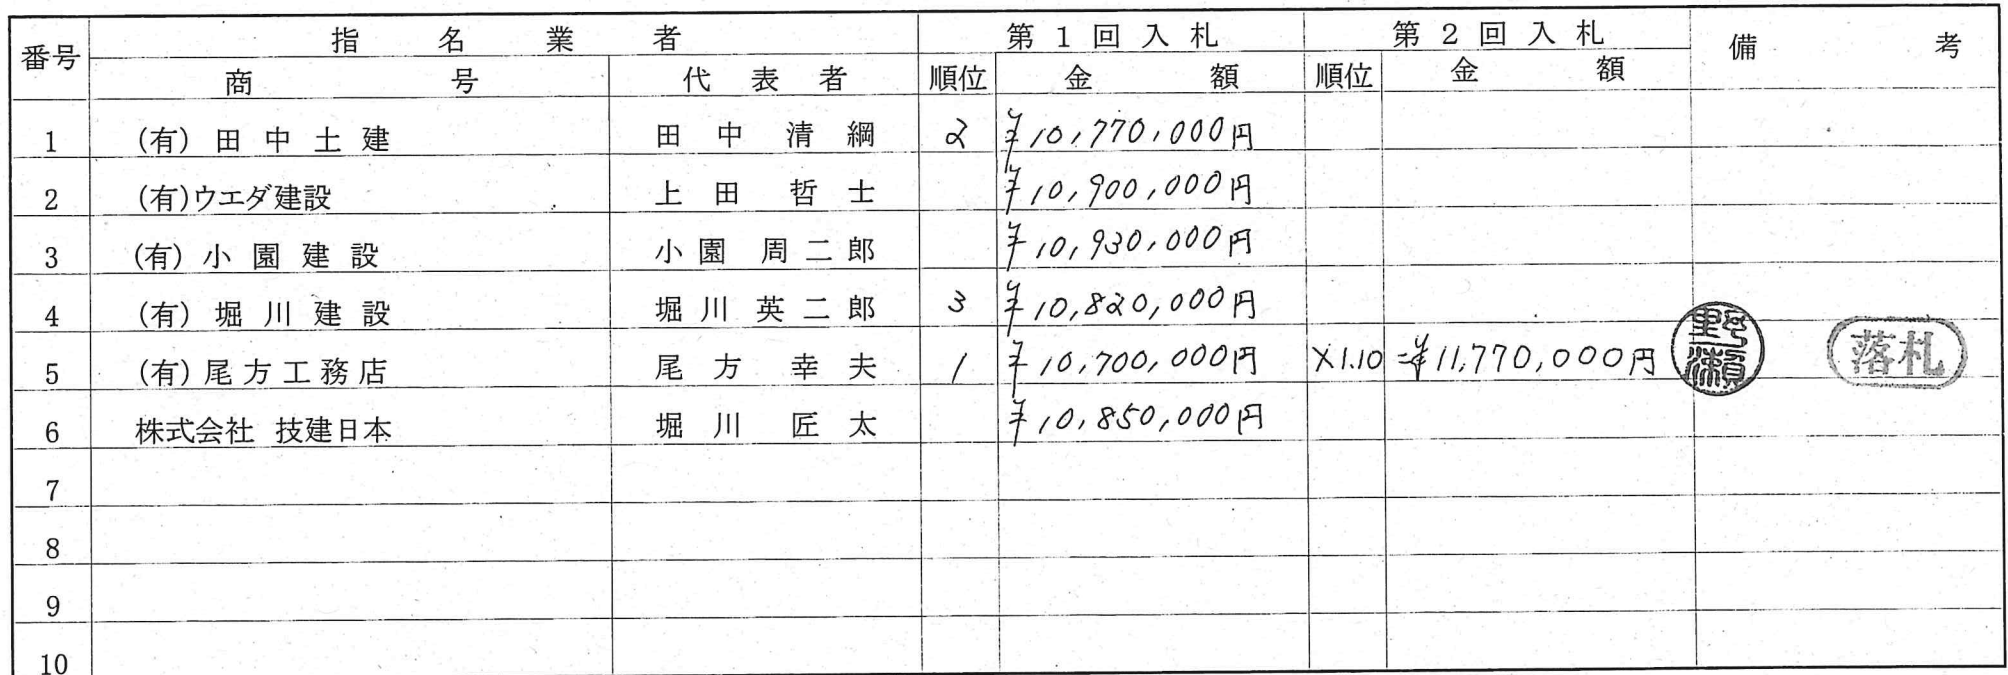 番号 指名業者 第1回入札 第2回入札 備考
商号 代表者 順位 金額 順位 金額
1 (有) 田中土建 田中 清綱 2 ¥10,770,000円
2 (有)ウエダ建設 上田 哲士 ¥10,900,000円
3 (有) 小園建設 小園 周二郎 ¥10,930,000円
4 (有) 堀川建設 堀川英二郎 3 ¥10,820,000円
5 (有) 尾方工務店 尾方 幸夫 1 ¥10,700,000円 ×1.10 =¥11,770,000円 野瀬 落札
6 株式会社 技建日本 堀川 匠太 ¥10,850,000円
7
8
9
10